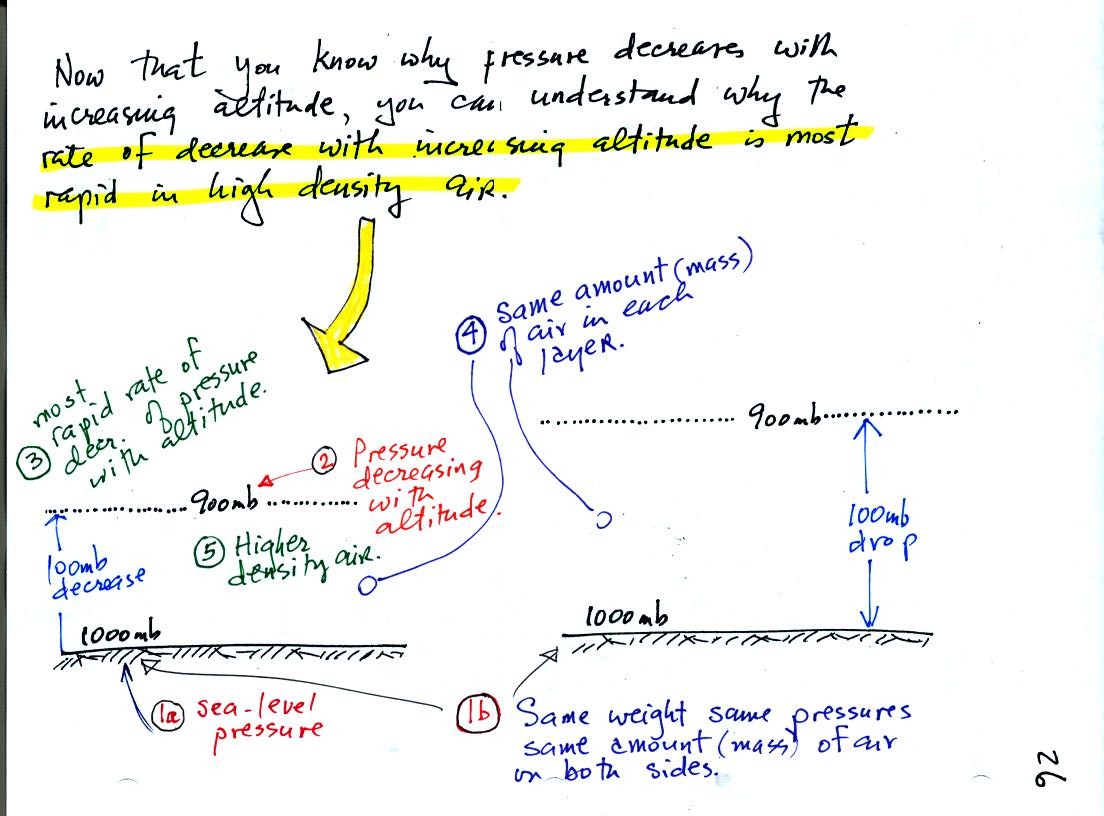 Now that you know why pressure decreases with
increasing altitude, you can understand why the
rate of decrease with increasing altitude is most
rapid in high density air.
④ Same amount (mass)
of air in each
layer.
③ most
rapid rate of
decr. of pressure
with altitude.
900mb
② Pressure
decreasing
with
altitude.
900mb
100mb
decrease
⑤ Higher
density air.
100mb
drop
1000mb
1000mb
1a sea-level
pressure
1b Same weight same pressures
same amount (mass) of air
on both sides.
26